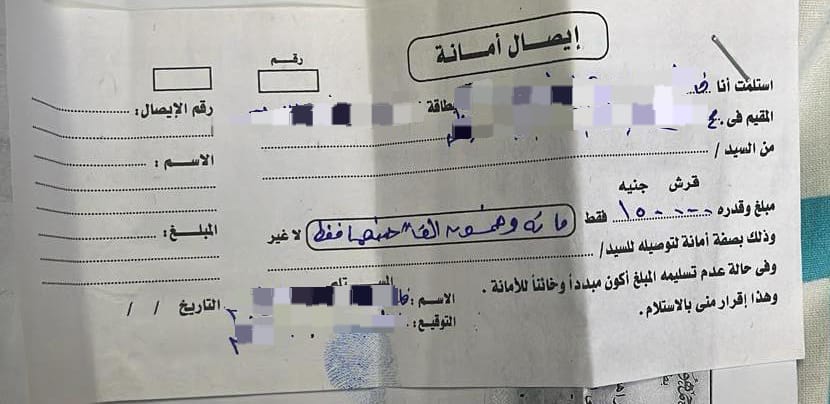 إيصال أمانة
رقم
استلمت أنا
بطاقة
رقم الإيصال:
المقيم فى
من السيد /
الاسم :
قرش جنيه
مبلغ وقدره ١٥٠٠٠٠ فقط مائه وخمسون الفا جنيها فقط لا غير
المبلغ :
وذلك بصفة أمانة لتوصيله للسيد/
وفى حالة عدم تسليمه المبلغ أكون مبدداً وخائناً للأمانة .
وهذا إقرار منى بالاستلام .
الاسم :
التوقيع :
التاريخ / /